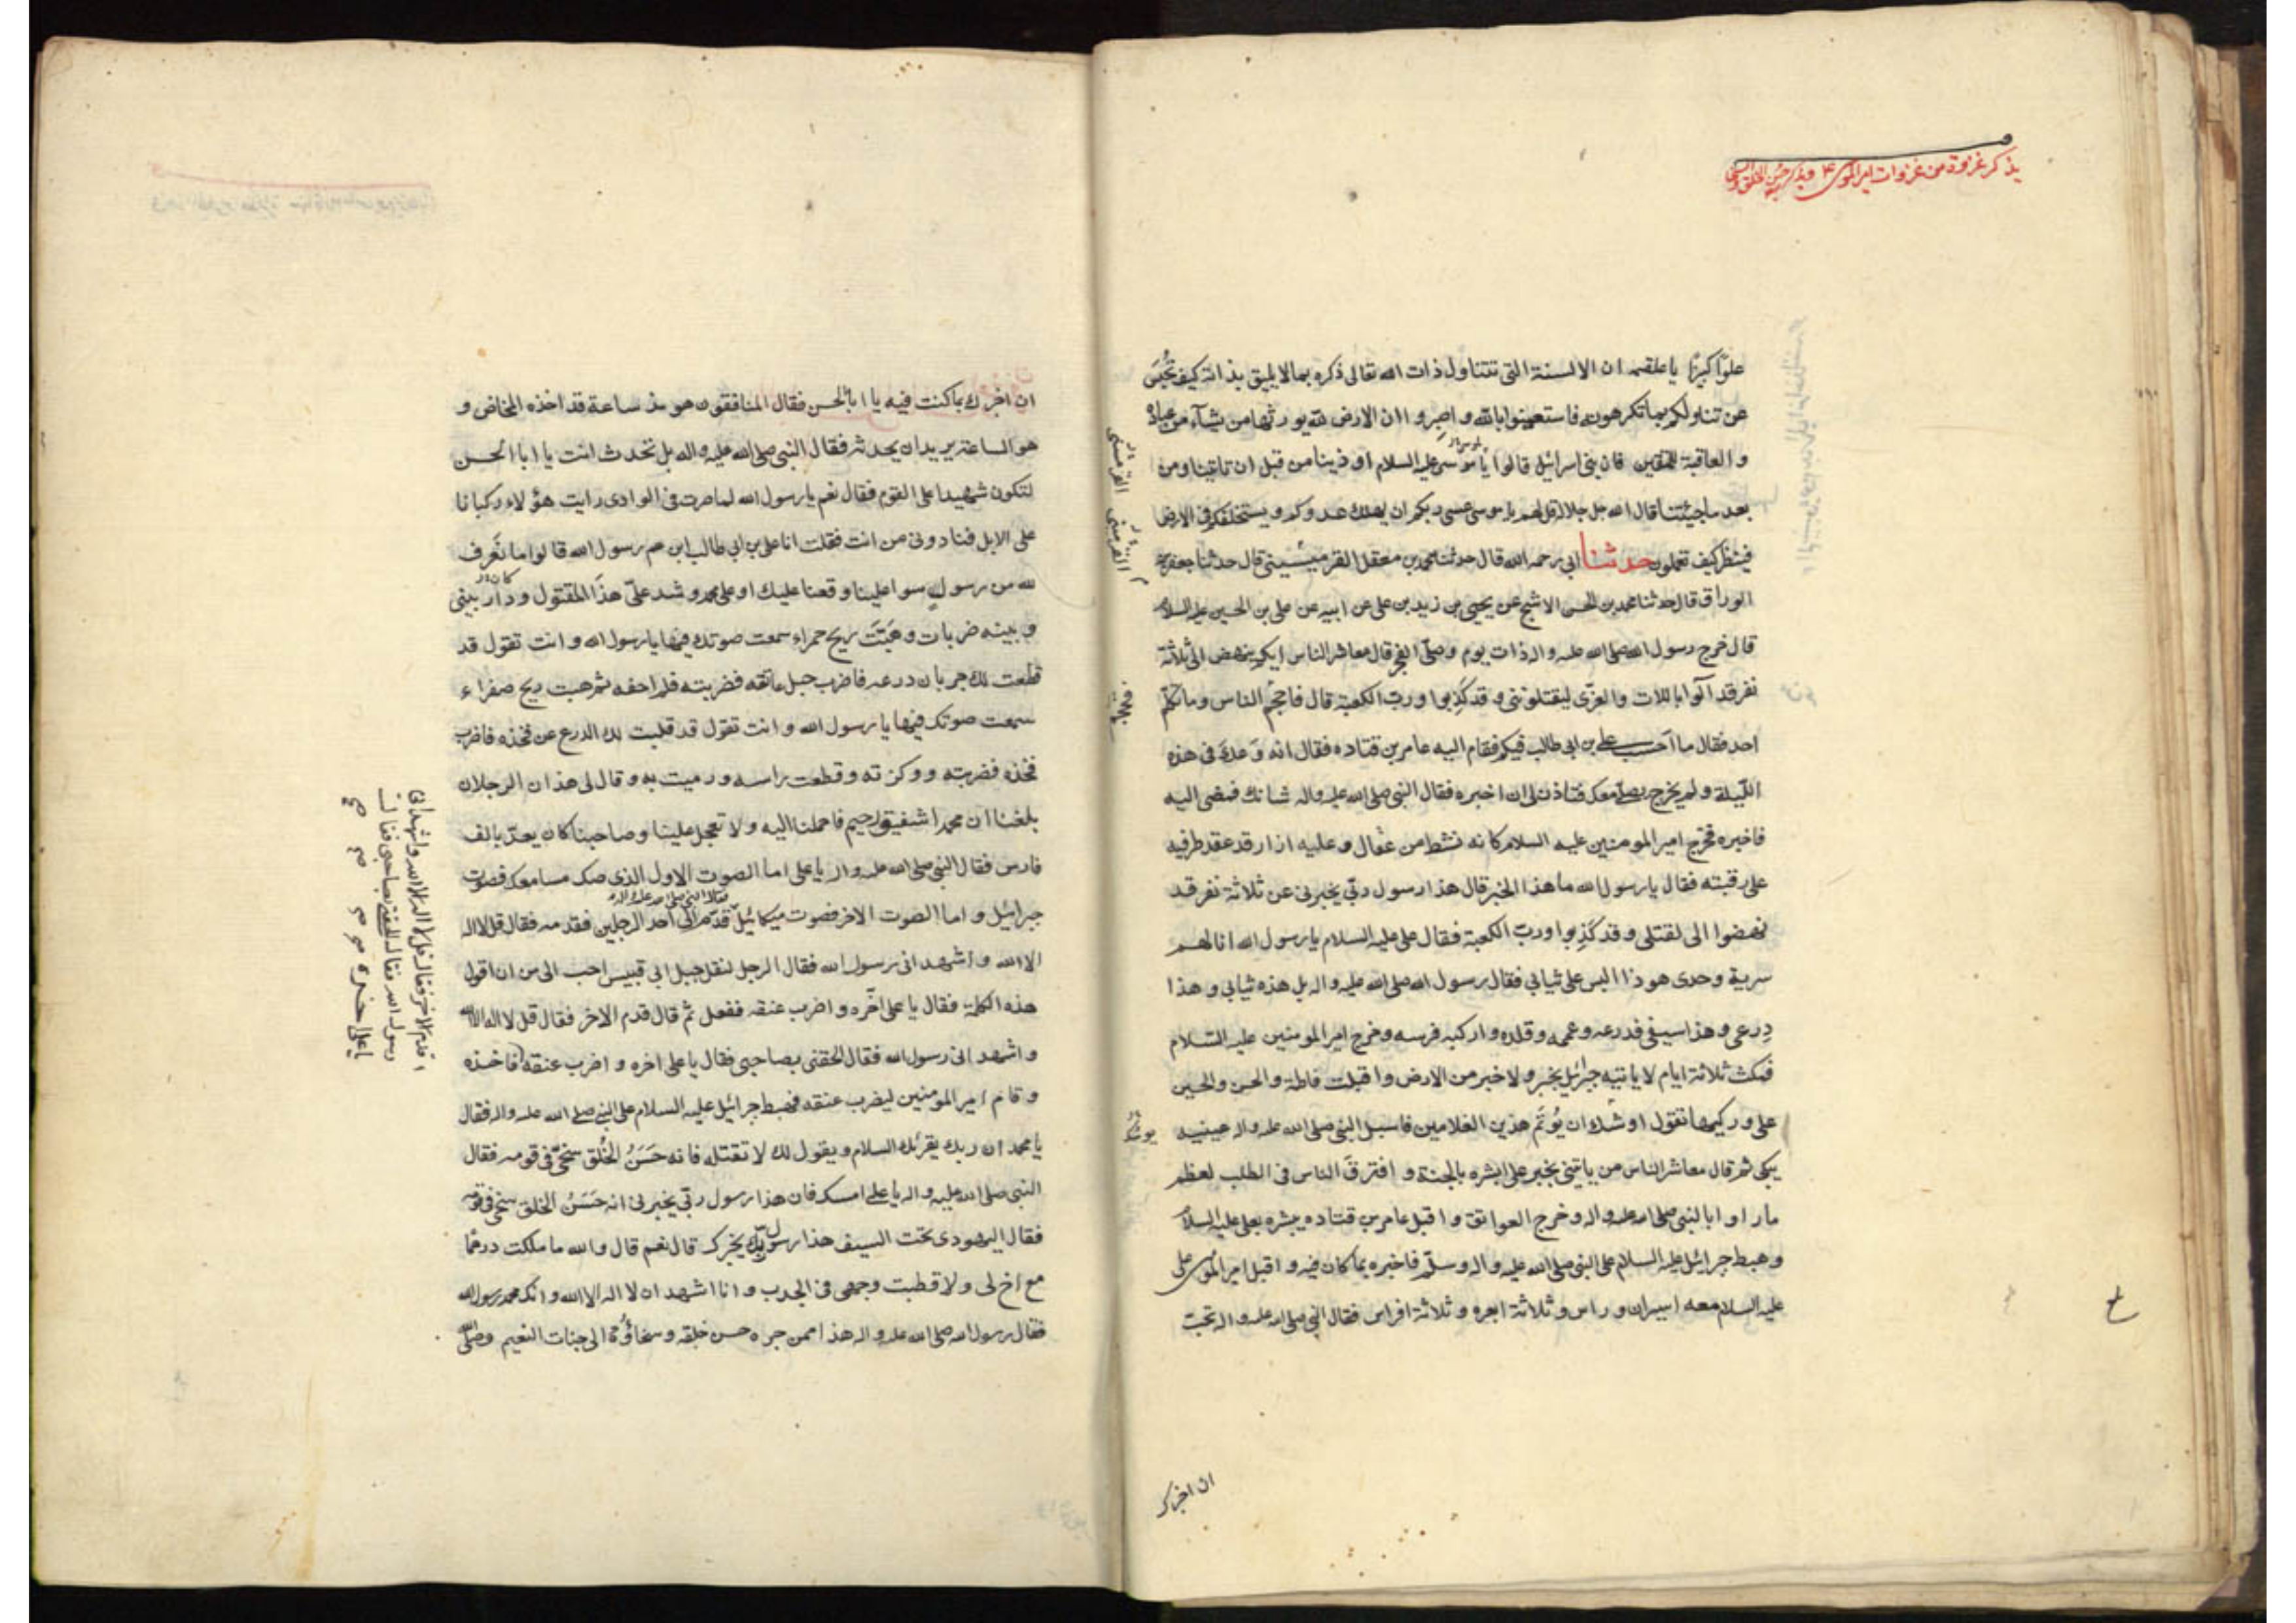 يذكر غزوة من غزوات امير المؤمنين ع
علوّا كبيرًا يا علقمه ان الالسنة التى تتناول ذات الله تعالى ذكره بما لا يليق بذاته كيف تُحْبَسُ
عن تناولكم بما تكرهونه فاستعينوا بالله واصبروا ان الارض لله يورثها من يشآء من عباده
والعاقبة للمتقين فان بنى اسرائيل قالوا يا موسى عليه السلام اوذينا من قبل ان تاتينا ومن
بعد ما جئتنا قال الله جل جلاله قل لهم يا موسى عسى ربكم ان يهلك عدوكم ويستخلفكم فى الارض
فينظر كيف تعملون حدثنا ابى رحمه الله قال حدثنا محمد بن معقل القرميسينى قال حدثنا جعفر
الوراق قال حدثنا محمد بن الحسن الاشج عن يحيى بن زيد بن على عن ابيه عن على بن الحسين عليه السلام
قال خرج رسول الله صلى الله عليه واله ذات يوم وصلّى الفجر قال معاشر الناس ايكم ينهض الى ثلاثة
نفر قد آلوا باللات والعزّى ليقتلونى وقد كذبوا ورب الكعبة قال فاحجم الناس وما تكلم
احد فقال ما احسب على بن ابى طالب فيكم فقام اليه عامر بن قتاده فقال انه وَعكَ فى هذه
اللّيلة ولم يخرج يصلّى معك فتاذن لى ان اخبره فقال النبى صلى الله عليه واله شانك فمضى اليه
فاخبره فخرج امير المومنين عليه السلام كانه نشط من عقال وعليه ازار قد عقد طرفيه
على رقبته فقال يا رسول الله ما هذا الخبر قال هذا رسول ربّى يخبرنى عن ثلاثة نفر قد
نهضوا الى لقتلى وقد كَذِبوا وربّ الكعبة فقال على عليه السلام يا رسول الله انا لهم
سرية وحدى هو ذا البس على ثيابى فقال رسول الله صلى الله عليه واله بل هذه ثيابى وهذا
دِرعى وهذا سيفى فدرعه وعممه وقلده واركبه فرسه وخرج امير المومنين عليه السّلام
فمكث ثلاثة ايام لا ياتيه جبرائيل بخبره ولا خبر من الارض واقبلت فاطمة والحسن والحسين
على وركيها تقول اوشك ان يُوتَم هذين الغلامين فاسبل النبى صلى الله عليه واله عينيه
يبكى ثم قال معاشر الناس من ياتينى بخبر على ابشره بالجنة وافترقَ الناس فى الطلب لعظم
ما راوا بالنبى صلى الله عليه واله وخرج العواتق واقبل عامر بن قتاده يبشره بعلى عليه السلام
وهبط جبرائيل عليه السلام على النبى صلى الله عليه واله وسلّم فاخبره بما كان فيه واقبل امير المؤمنين على
عليه السلام معه اسيران وراس وثلاثة ابعره وثلاثة افراس فقال النبى صلى الله عليه واله تحبّ
يوشك
ان اخبرك
ان اخبرك بما كنت فيه يا ابا الحسن فقال المنافقون هو منذ ساعة قد اخذه المخاض و
هو الساعة يريد ان يحدثه فقال النبى صلى الله عليه واله بل تحدث انت يا ابا الحسن
لتكون شهيدا على القوم فقال نعم يا رسول الله لما صرت فى الوادى رايت هؤلاء ركبانا
على الابل فنادونى من انت فقلت انا على بن ابى طالب ابن عم رسول الله قالوا ما نَعرف
لله من رسولٍ سواء علينا وقعنا عليك او على محمد وشد علىّ هذا المقتول ودار بينى
وبينه ضربات وهَبّتَ ريح حمراء سمعت صوتك فيها يا رسول الله وانت تقول قد
قطعت لك جربان درعه فاضرب حبل عاتقه فضربته فلم احفه ثم هبت ريح صفراء
سمعت صوتك فيها يا رسول الله وانت تقول قد قلبت لك الدرع عن فخذه فاضرب
فخذه فضربته ووكزته وقطعت راسه ورميت به وقال لى هذان الرجلان
بلغنا ان محمدا شفيق رحيم فاحملنا اليه ولا تعجل علينا وصاحبنا كان يعدّ بالف
فارس فقال النبى صلى الله عليه واله يا على اما الصوت الاول الذى صك مسامعك فصوت
جبرائيل واما الصوت الاخر فصوت ميكائيل قدّم الىّ احد الرجلين فقدمه فقال قل لا اله
الا الله واشهد انى رسول الله فقال الرجل لنقل جبل ابى قبيس احب الى من ان اقول
هذه الكلمة فقال يا على اخّره واضرب عنقه ففعل ثم قال قدم الاخر فقال قل لا اله الا الله
واشهد انى رسول الله فقال الحقنى بصاحبى فقال يا على اخره واضرب عنقه فاخذه
وقام امير المومنين ليضرب عنقه فهبط جبرائيل عليه السلام على النبى صلى الله عليه واله فقال
يا محمد ان ربك يقرئك السلام ويقول لك لا تقتله فانه حَسَنُ الخُلق سخىّ فى قومه فقال
النبى صلى الله عليه واله يا على امسك فان هذا رسول ربّى يخبرنى انه حَسَنُ الخلق سخى فى قومه
فقال اليهودى تحت السيف هذا رسول ربّك يخبرك قال نعم قال والله ما ملكت درهما
مع اخ لى ولا قطبت وجهى فى الجدب وانا اشهد ان لا اله الا الله وانك محمد رسول الله
فقال رسول الله صلى الله عليه واله هذا ممن جره حسن خلقه وسخاؤه الى جنات النعيم وصلى الله
قدم الاخر فقال قل لا اله الا الله واشهد انى
رسول الله فقال الحقنى بصاحبى فقال
يا على اخره